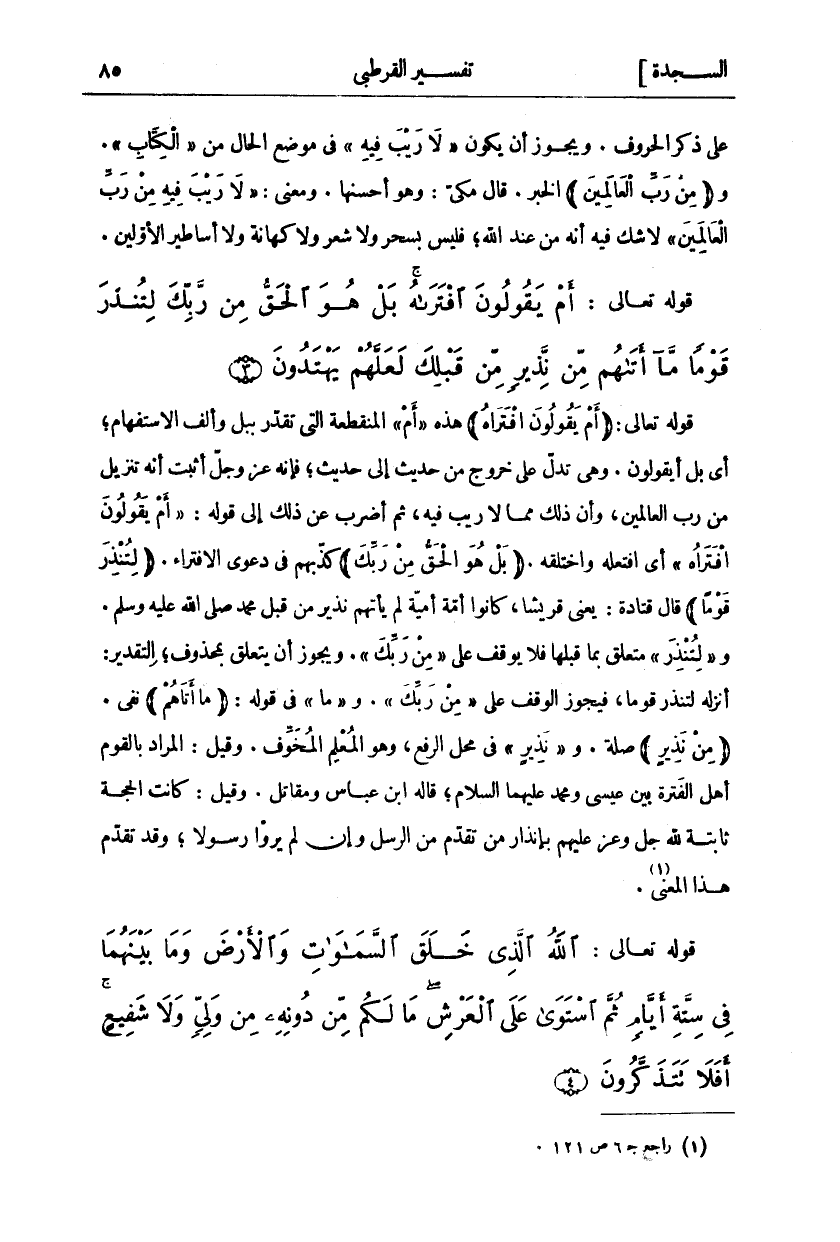 السـجدة ] تفسـير القرطبى ٨٥
على ذكر الحروف . ويجـوز أن يكون « لَا رَيْبَ فِيهِ » فى موضع الحال من « الْكِتَابِ » .
و ( مِنْ رَبِّ الْعَالَمِينَ ) الخبر . قال مكىّ : وهو أحسنها . ومعنى : « لَا رَيْبَ فِيهِ مِنْ رَبِّ
الْعَالَمِينَ » لا شك فيه أنه من عند الله ؛ فليس بسحر ولا شعر ولا كهانة ولا أساطير الأوّلين .
قوله تعـالى : أَمْ يَقُولُونَ ٱفْتَرَىٰهُ ۚ بَلْ هُـوَ ٱلْحَقُّ مِن رَّبِّكَ لِتُنـذِرَ
قَوْمًا مَّآ أَتَىٰهُم مِّن نَّذِيرٍ مِّن قَبْلِكَ لَعَلَّهُمْ يَهْتَدُونَ ﴿٣﴾
قوله تعالى : ( أَمْ يَقُولُونَ افْتَرَاهُ ) هذه « أَمْ » المنقطعة التى تقدّر ببل وألف الاستفهام ؛
أى بل أيقولون . وهى تدلّ على خروج من حديث إلى حديث ؛ فإنه عز وجلّ أثبت أنه تنزيل
من رب العالمين ، وأن ذلك ممـا لا ريب فيه ، ثم أضرب عن ذلك إلى قوله : « أَمْ يَقُولُونَ
افْتَرَاهُ » أى افتعله واختلقه . ( بَلْ هُوَ الْحَقُّ مِنْ رَبِّكَ ) كذّبهم فى دعوى الافتراء . ( لِتُنْذِرَ
قَوْمًا ) قال قتادة : يعنى قريشا ، كانوا أمّة أميّة لم يأتهم نذير من قبل محمد صلى الله عليه وسلم .
و « لِتُنْذِرَ » متعلق بما قبلها فلا يوقف على « مِنْ رَبِّكَ » . ويجوز أن يتعلق بمحذوف ؛ التقدير :
أنزله لتنذر قوما ، فيجوز الوقف على « مِنْ رَبِّكَ » . و « ما » فى قوله : ( ما أَتَاهُمْ ) نفى .
( مِنْ نَذِيرٍ ) صلة . و « نَذِيرٍ » فى محل الرفع ، وهو المُعْلِم المُخَوِّف . وقيل : المراد بالقوم
أهل الفَترة بين عيسى ومحمد عليهما السلام ؛ قاله ابن عباس ومقاتل . وقيل : كانت الحجـة
ثابتـة لله جل وعز عليهم بإنذار من تقدّم من الرسل وإن لم يروْا رسـولا ؛ وقد تقدّم
هـذا المعنى (١) .
قوله تعـالى : ٱللَّهُ ٱلَّذِى خَـلَقَ ٱلسَّمَـٰوَٰتِ وَٱلْأَرْضَ وَمَا بَيْنَهُمَا
فِى سِتَّةِ أَيَّامٍ ثُمَّ ٱسْتَوَىٰ عَلَى ٱلْعَرْشِ ۖ مَا لَكُم مِّن دُونِهِۦ مِن وَلِىٍّ وَلَا شَفِيعٍ ۚ
أَفَلَا تَتَذَكَّرُونَ ﴿٤﴾
(١) راجع جـ ٦ ص ١٢١ .